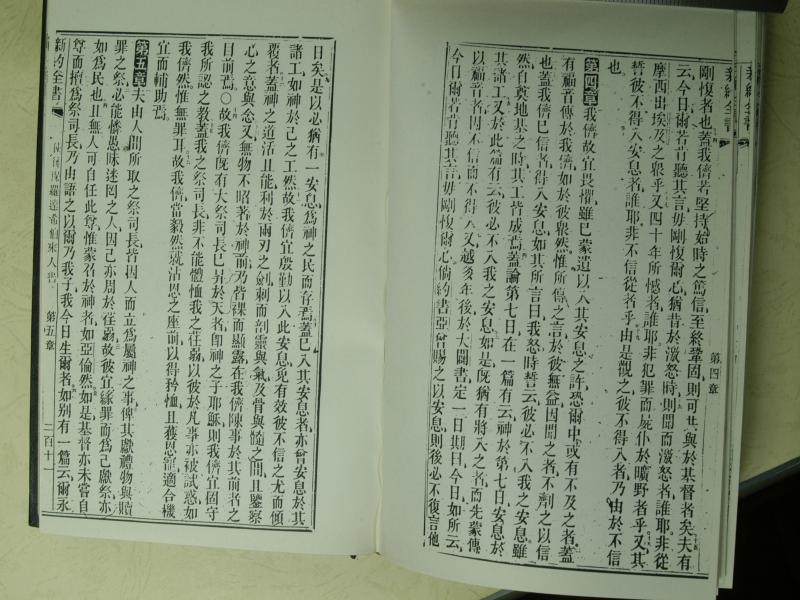 剛愎者也蓋我儕若堅持始時之篤信至終鞏固則可共與於基督者矣夫有
云今日爾若肯聽其言毋剛愎爾心猶昔於激怒時則聞而激怒者誰耶非從
摩西出埃及之眾乎又四十年所憾者誰耶非犯罪而屍仆於曠野者乎又其
誓彼不得入安息者誰耶非不信從者乎由是觀之彼不得入者乃由於不信
也
第四章
第四章 我儕故宜畏懼雖已蒙遺以入其安息之許恐爾中或有不及之者蓋
有福音傳於我儕如於彼眾然惟所傳之言於彼無益因聞之者不劑之以信
也蓋我儕已信者得入安息如其所言曰我怒時誓云彼必不入我之安息雖
然自奠地基之時其工皆成焉蓋論第七日在一篇有云神於第七日安息於
其諸工又於此篇有云彼必不入我之安息如是既猶有將入之者而先蒙傳
以福音者因不信而不得入又越多年後於大闢書定一日期曰今日如所云
今日爾若肯聽其言毋剛愎爾心倘約書亞曾賜之以安息則後必不復言他
日矣是以必猶有一安息為神之民而存焉蓋已入其安息者亦曾安息於其
諸工如神於己之工然故我儕宜殷勤以入此安息免有效彼不信之尤而傾
覆者蓋神之道活且能利於兩刃之劍刺而剖靈與氣及骨與髓之間且鑒察
心之意與念又無物不昭著於神前乃皆裸而顯露在我儕陳事於其前者之
目前焉〇故我儕既有大祭司長已昇於天者即神之子耶穌則我儕宜固守
我所認之教蓋我之祭司長非不能體恤我之荏弱以彼於凡事亦被試惑如
我儕然惟無罪耳故我儕當毅然就沾恩之座前以得矜恤且獲恩寵適合機
宜而輔助焉
第五章 夫由人間所取之祭司長皆因人而立為屬神之事俾其獻禮物與贖
罪之祭必能憐愚昧迷罔之人因己亦周於荏弱故彼宜緣罪而為己獻祭亦
如為民也且無人可自任此尊惟蒙召於神者如亞倫然如是基督亦未嘗自
尊而擅為祭司長乃由語之以爾乃我子我今日生爾者如別有一篇云爾永
新約全書
第五章
二百十一